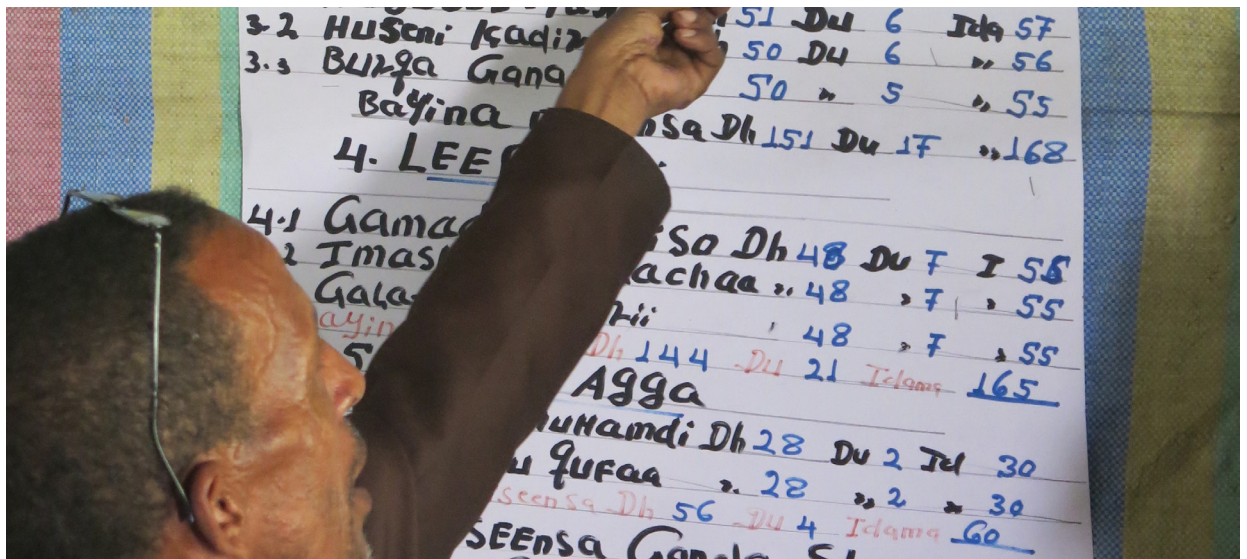 51 Du 6 Ida 57
3.2 Huseni Kadir 50 Du 6 " 56
3.3 Burqa Gana 50 " 5 " 55
Bayina nsa Dh 151 Du 17 " 168
4. LEE
4.1 Gamad iso Dh 48 Du 7 I 55
2 Imas achaa " 48 " 7 " 55
Gala rii 48 " 7 " 55
ayin Dh 144 Du 21 Idama 165
5 Agga
uHamdi Dh 28 Du 2 Id 30
u qufaa " 28 " 2 " 30
seensa Dh 56 Du 4 Idama 60
SEEnsa Ganda